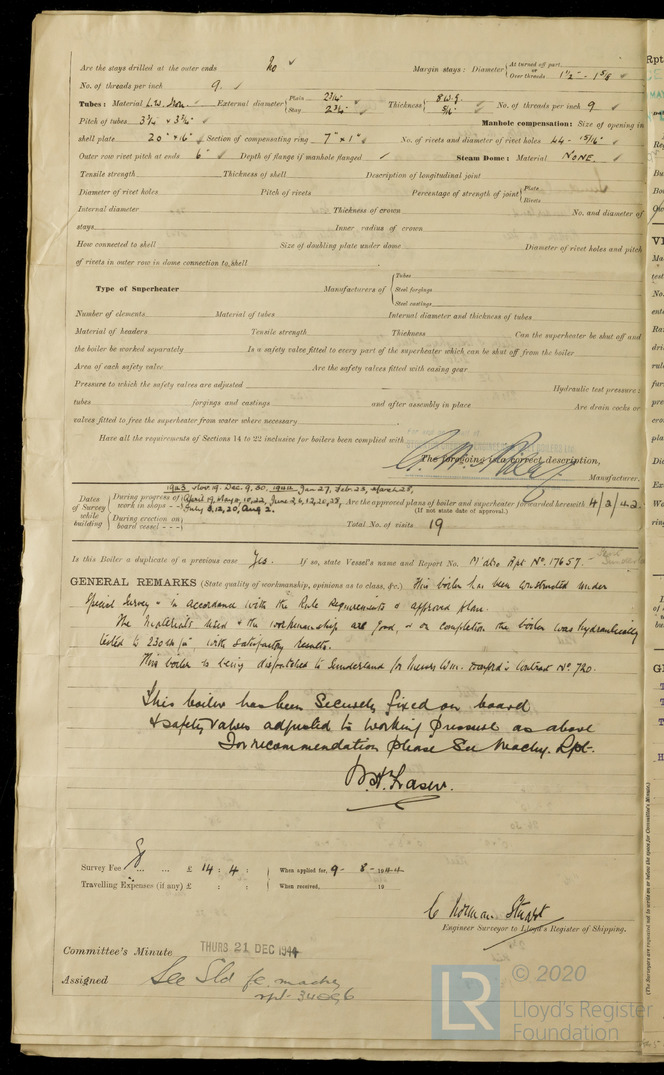 Are the stays drilled at the outer ends No ✓ Margin stays: Diameter { At turned off part, or Over threads 1 1/2" - 1 5/8 ✓
No. of threads per inch 9. ✓
Tubes: Material L.W. Iron ✓ External diameter { Plain 2 3/4" Stay 2 3/4" ✓ Thickness { 8 W.G. 5/16" ✓ No. of threads per inch 9 ✓
Pitch of tubes 3 3/4 × 3 3/4" ✓ Manhole compensation: Size of opening in
shell plate 20" × 16" ✓ Section of compensating ring 7" × 1" ✓ No. of rivets and diameter of rivet holes 44 - 15/16" ✓
Outer row rivet pitch at ends 6" ✓ Depth of flange if manhole flanged ✓ Steam Dome: Material NONE ✓
Tensile strength Thickness of shell Description of longitudinal joint
Diameter of rivet holes Pitch of rivets Percentage of strength of joint { Plate Rivets
Internal diameter Thickness of crown No. and diameter of
stays Inner radius of crown
How connected to shell Size of doubling plate under dome Diameter of rivet holes and pitch
of rivets in outer row in dome connection to shell
Type of Superheater Manufacturers of { Tubes Steel forgings Steel castings
Number of elements Material of tubes Internal diameter and thickness of tubes
Material of headers Tensile strength Thickness Can the superheater be shut off and
the boiler be worked separately Is a safety valve fitted to every part of the superheater which can be shut off from the boiler
Area of each safety valve Are the safety valves fitted with easing gear
Pressure to which the safety valves are adjusted Hydraulic test pressure:
tubes forgings and castings and after assembly in place Are drain cocks or
valves fitted to free the superheater from water where necessary
Have all the requirements of Sections 14 to 22 inclusive for boilers been complied with
The foregoing is a correct description,
Manufacturer.
1943 Nov. 19. Dec. 9, 30. 1944 Jan 27, Feb 23, March 28,
Dates of Survey while building { During progress of work in shops - - { April 19, May 2, 10, 22, June 2, 6, 12, 20, 28, July 5, 12, 20, Aug 2. Are the approved plans of boiler and superheater forwarded herewith 4/2/42
(If not state date of approval.)
During erection on board vessel - - - Total No. of visits 19
Is this Boiler a duplicate of a previous case Yes. If so, state Vessel's name and Report No. M'dbro Rpt No. 17657.
GENERAL REMARKS (State quality of workmanship, opinions as to class, &c.) This boiler has been constructed under
Special Survey - in accordance with the Rule Requirements & approved plan.
The materials used & the workmanship are good, & on completion the boiler was hydraulically
tested to 230 lb/□" with satisfactory results.
This boiler is being dispatched to Sunderland for Messrs Wm. Doxford's Contract No. 720.
This boiler has been Securely fixed on board
& safety valves adjusted to working pressure as above
For recommendation please See Machy. Rpt.
Fraser.
Survey Fee ... ... £ 14 : 4 : When applied for, 9 - 8 - 1944
Travelling Expenses (if any) £ : : When received, 19
C Norman Stuart
Engineer Surveyor to Lloyd's Register of Shipping.
Committee's Minute THURS 21 DEC 1944
Assigned See Sld fe machy
rpt. 34696
© 2020
LR Lloyd's Register
Foundation
(The Surveyors are requested not to write on or below the space for Committee's Minute.)
Rpt